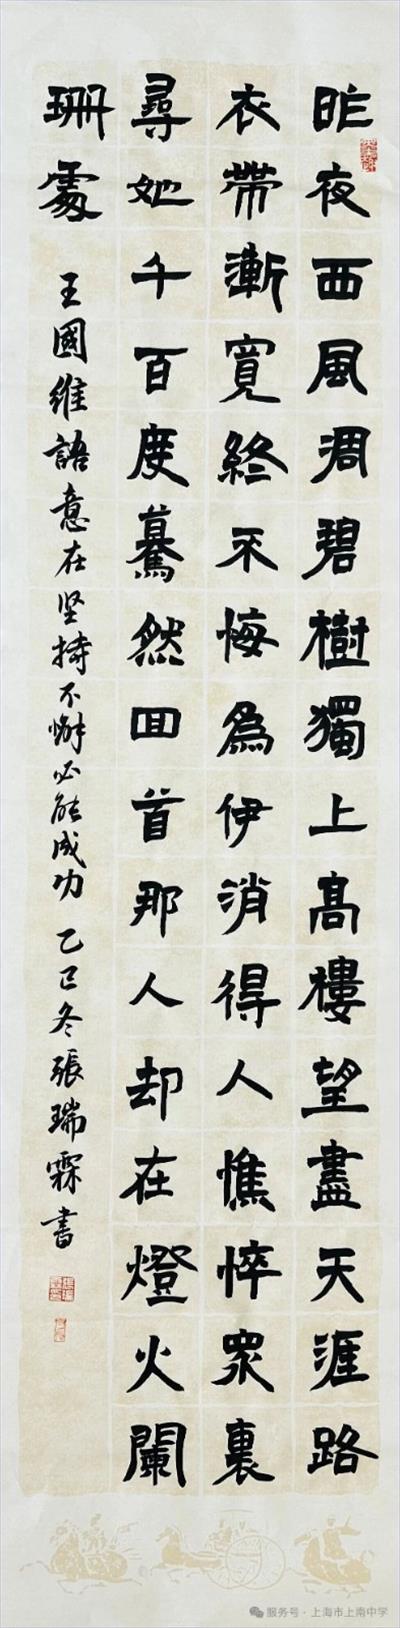 昨夜西風凋碧樹獨上高樓望盡天涯路
衣帶漸寬終不悔為伊消得人憔悴眾裏
尋她千百度驀然回首那人却在燈火闌
珊處
王國維語意在坚持不懈必能成功 乙巳冬張瑞霖書
服务号·上海市上南中学